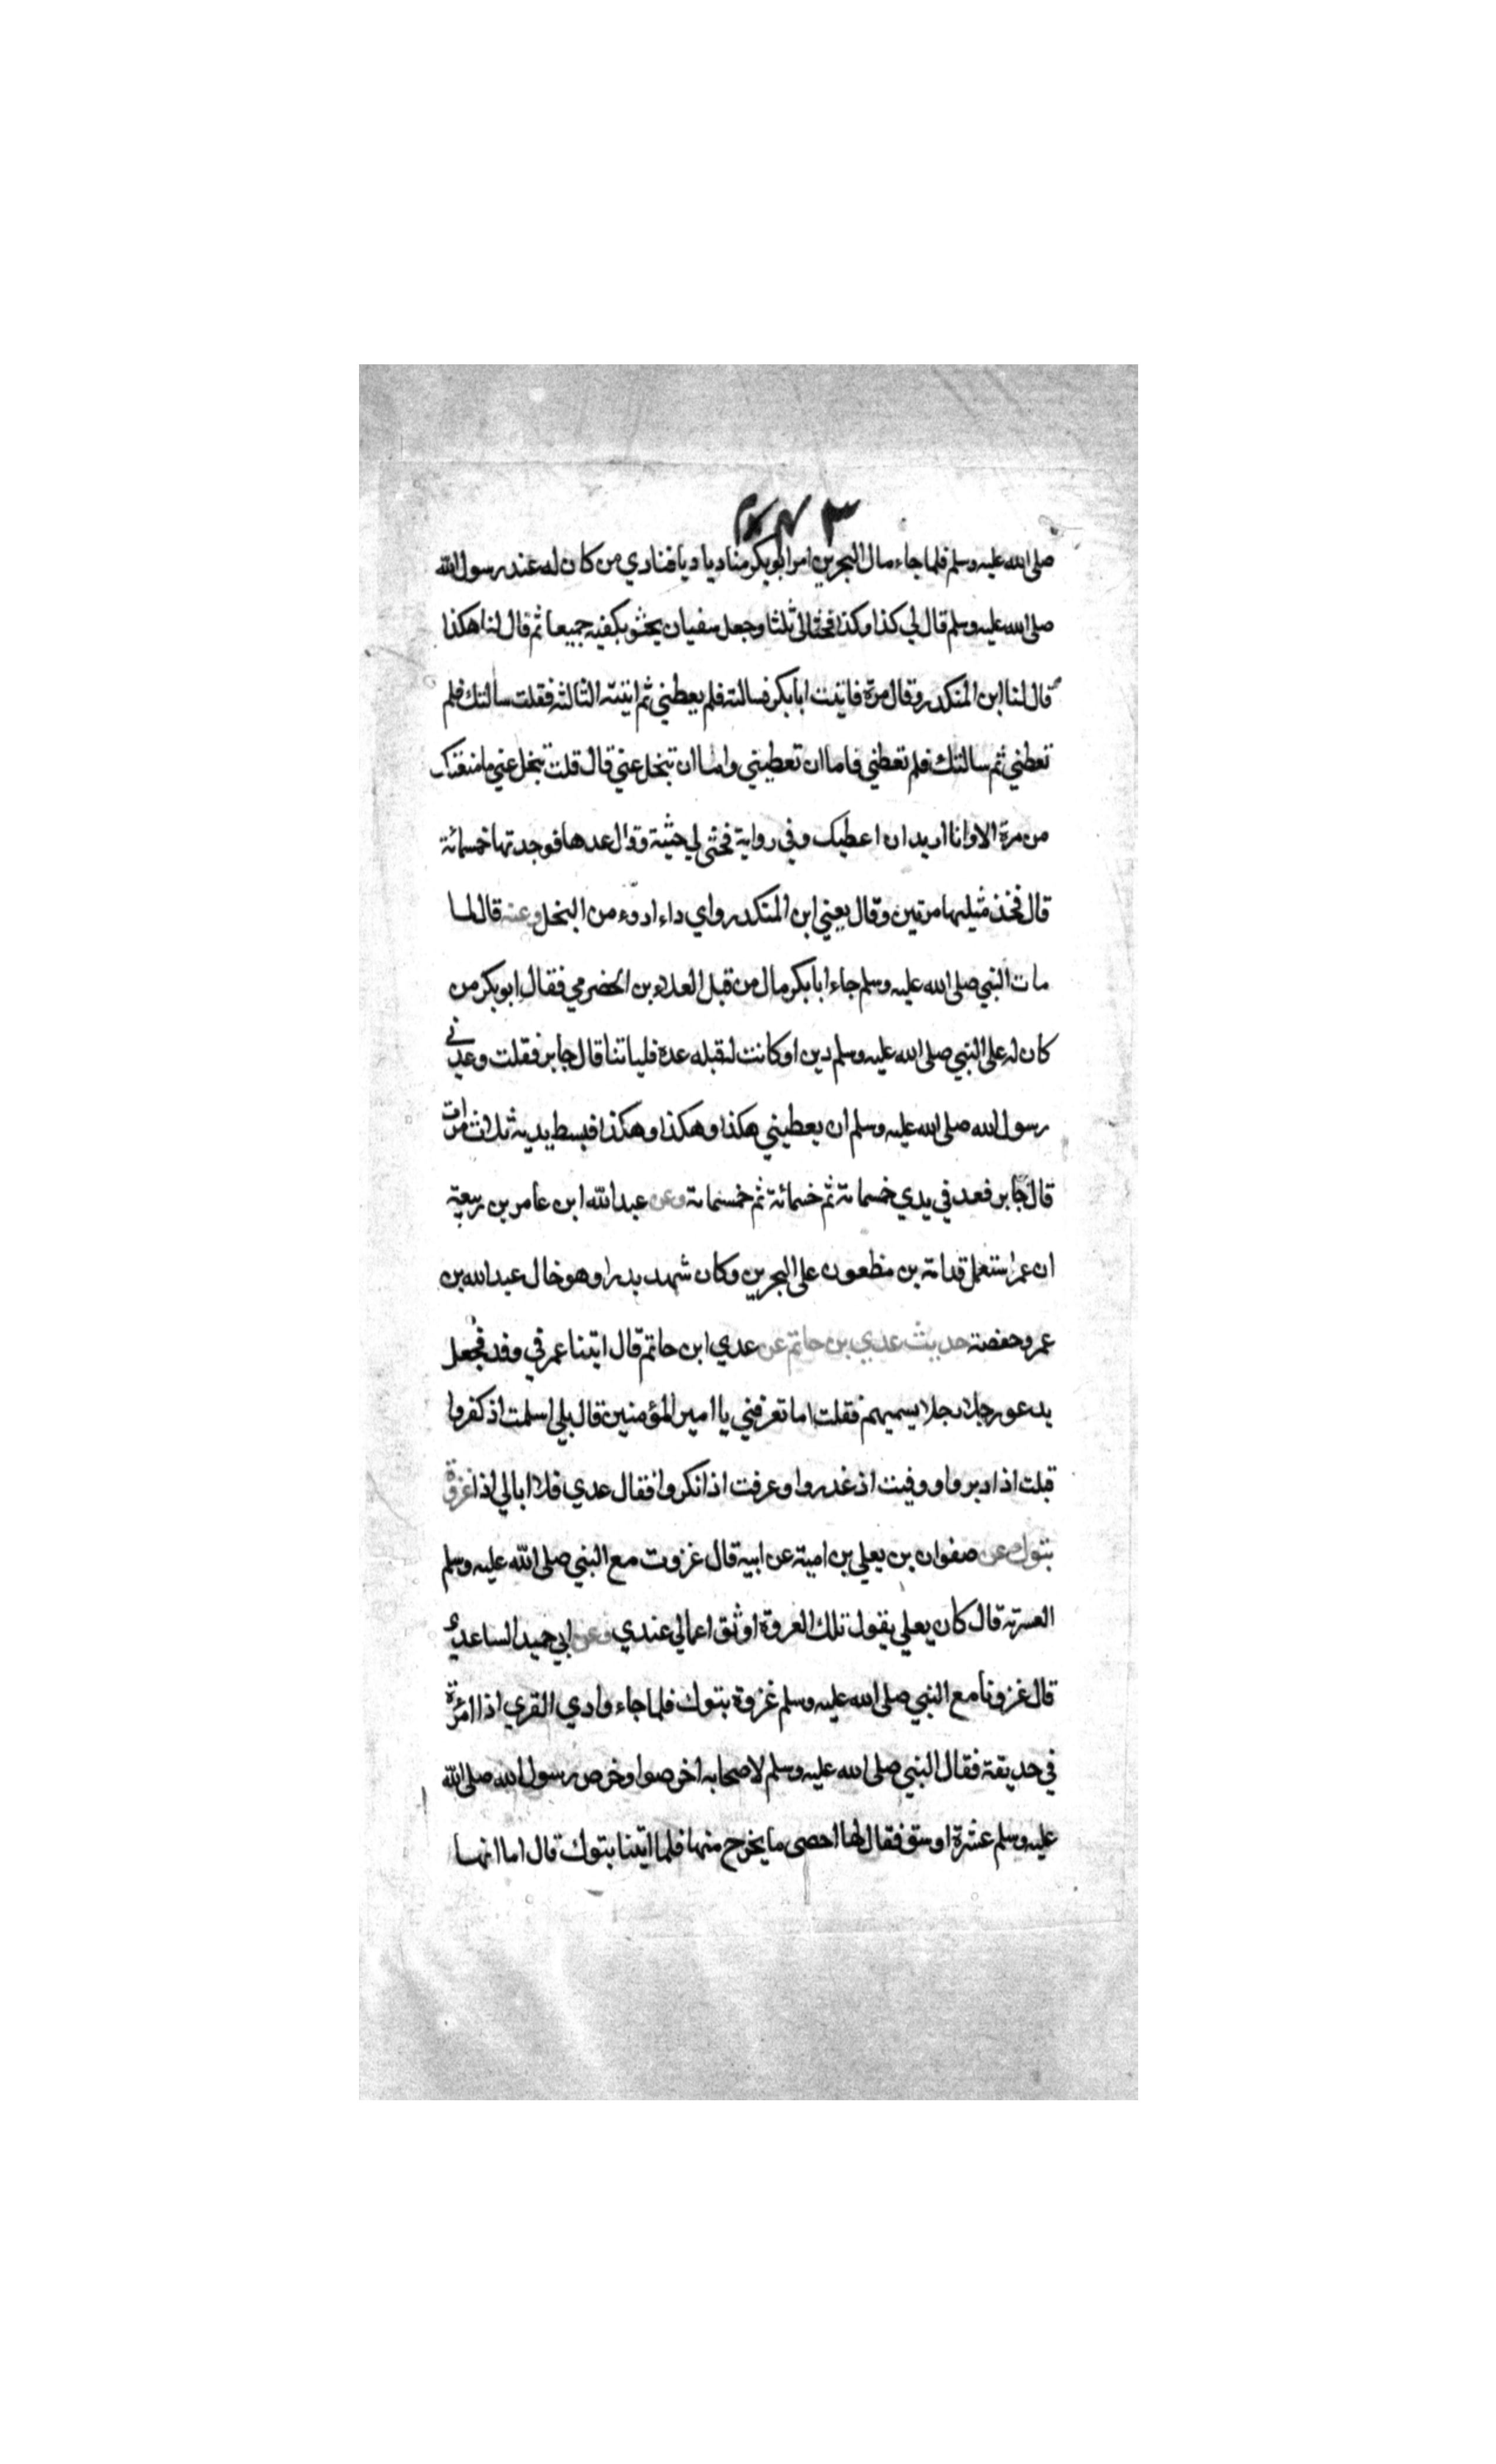 صلى الله عليه وسلم فلما جاء مال البحرين امر ابو بكر مناديا ديا فنادي من كان له عند رسول الله
صلى الله عليه وسلم قال لي كذا وكذا فحثالي ثلثا وجعل سفيان يحثو بكفيه جميعا ثم قال لنا هكذا
قال لنا ابن المنكدر وقال مرة فاتيت ابا بكر فسالته فلم يعطني ثم اتيته الثالثه فقلت سالتك فلم
تعطني ثم سالتك فلم تعطني فاما ان تعطيني واما ان تبخل عني قال قلت تبخل عني ما منعتك
من مرة الا وانا اريد ان اعطيك وفي رواية فحثى لي حثية وقال عدها فوجدتها خمسمائة
قال فخذ مثيلها مرتين وقال يعني ابن المنكدر واي داء ادوء من البخل وعنه قال لما
مات النبي صلى الله عليه وسلم جاء ابا بكر مال من قبل العلاء بن الحضرمي فقال ابو بكر من
كان له على النبي صلى الله عليه وسلم دين او كانت له قبله عدة فلياتنا قال جابر فقلت وعدني
رسول الله صلى الله عليه وسلم ان يعطيني هكذا وهكذا وهكذا فبسط يديه ثلاث مرات
قال جابر فعد في يدي خمسماتة ثم خمسمائة ثم خمسماتة وعن عبد الله ابن عامر بن ربيعة
ان عمر استعمل قدامة بن مظعون على البحرين وكان شهد بدرا وهو خال عبد الله بن
عمر وحفصة حديث عدي بن حاتم عن عدي ابن حاتم قال اتينا عمر في وفد فجعل
يدعو رجلا رجلا يسميهم فقلت اما تعرفني يا امير المؤمنين قال بلى اسلمت اذ كفروا
قبلت اذ ادبروا ووفيت اذ غدروا وعرفت اذ انكروا فقال عدي فلا ابالي اذا غزوة
بتوك عن صفوان بن يعلي بن امية عن ابيه قال غزوت مع النبي صلى الله عليه وسلم
العسرة قال كان يعلي يقول تلك الغزوة اوثق اعمالي عندي وعن ابي حميد الساعدي
قال غزونا مع النبي صلى الله عليه وسلم غزوة بتوك فلما جاء وادي القري اذا امرئة
في حديقة فقال النبي صلى الله عليه وسلم لاصحابه اخرصوا وخرص رسول الله صلى الله
عليه وسلم عشرة اوسق فقال لها احصى ما يخرج منها فلما اتينا بتوك قال اما انها